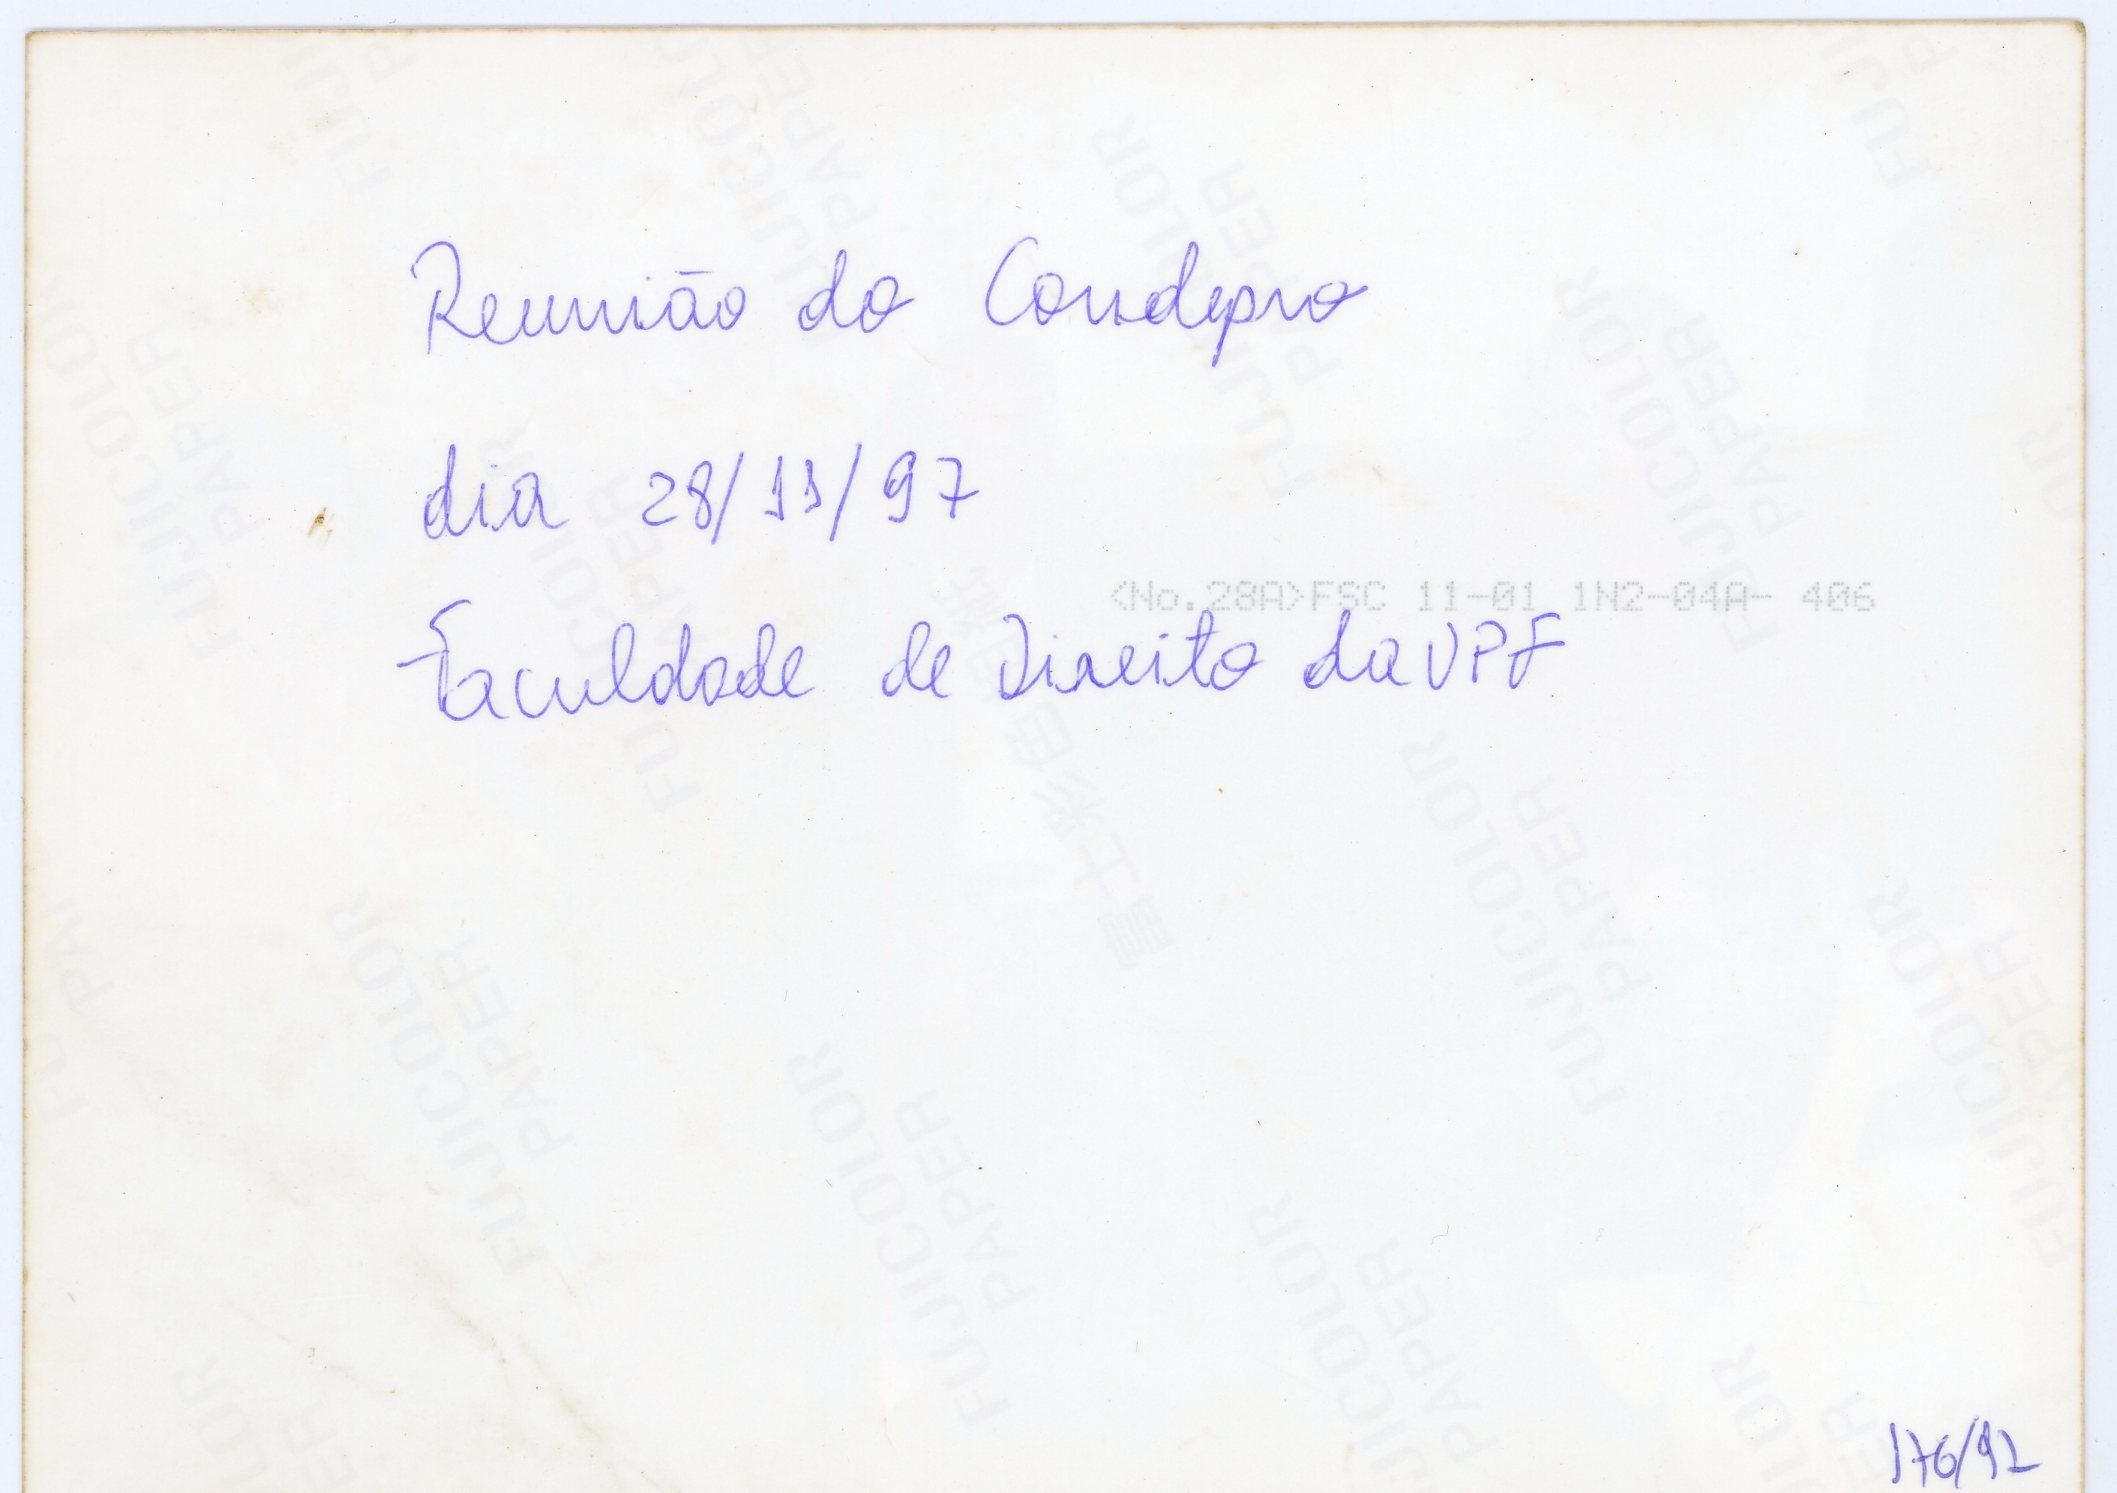 Reunião do Condepro
dia 28/11/97
<No.28A>FSC 11-01 1N2-04A- 406
Faculdade de Direito da UPF
FUJICOLOR
PAPER
176/92